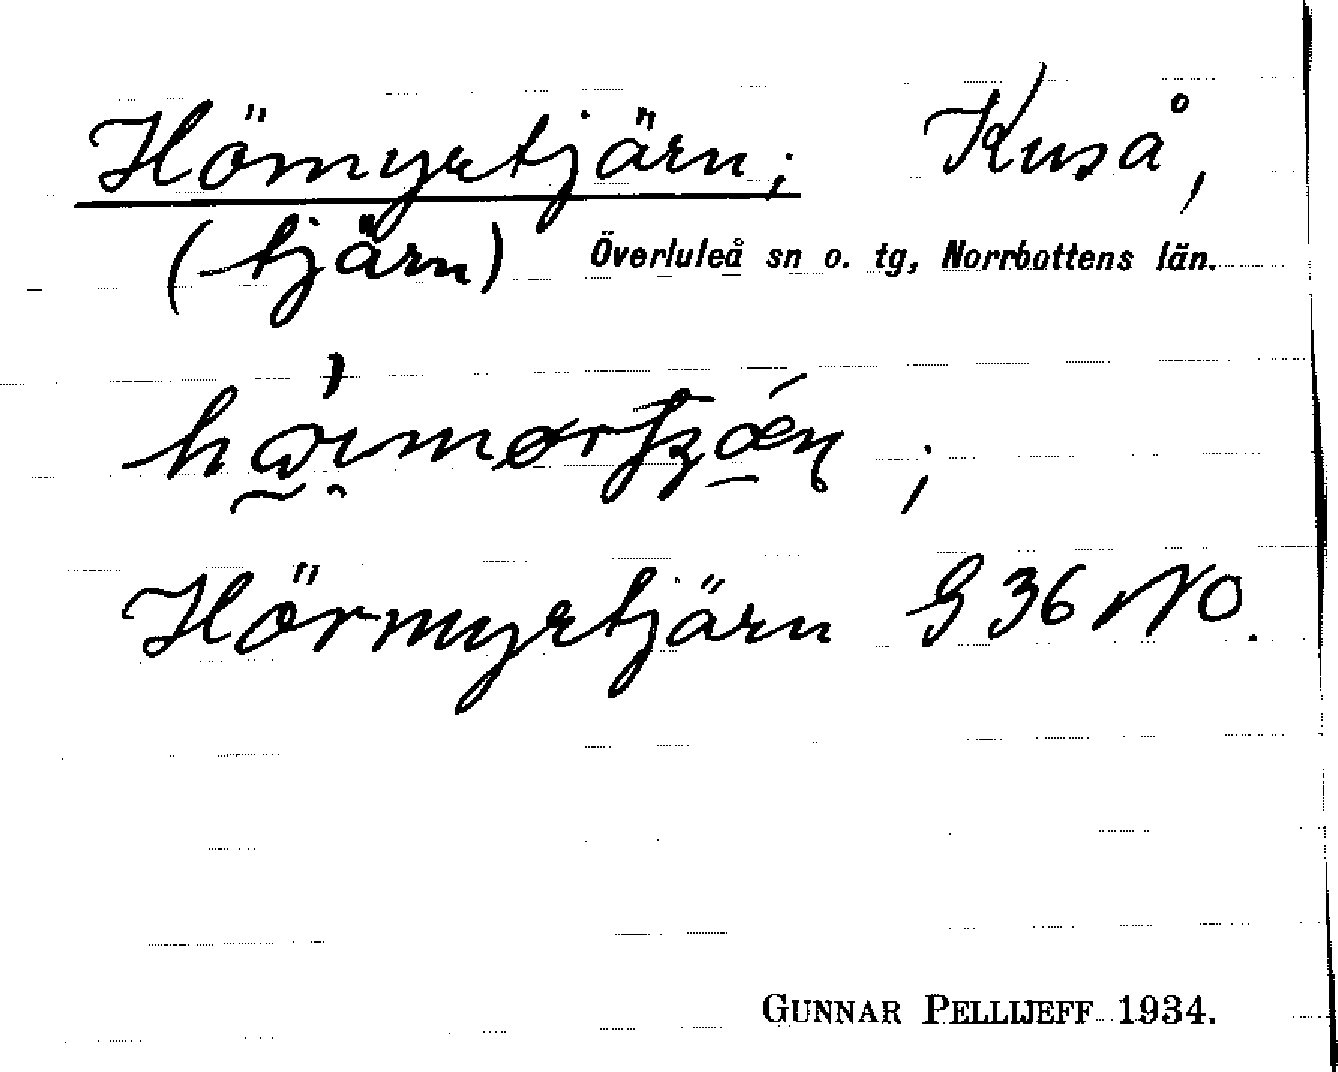 Hömyrtjärn; Kuså,
(tjärn) Överluleå sn o. tg, Norrbottens län.
Hörmyrtjärn G 36 NO.
GUNNAR PELLIJEFF 1934.